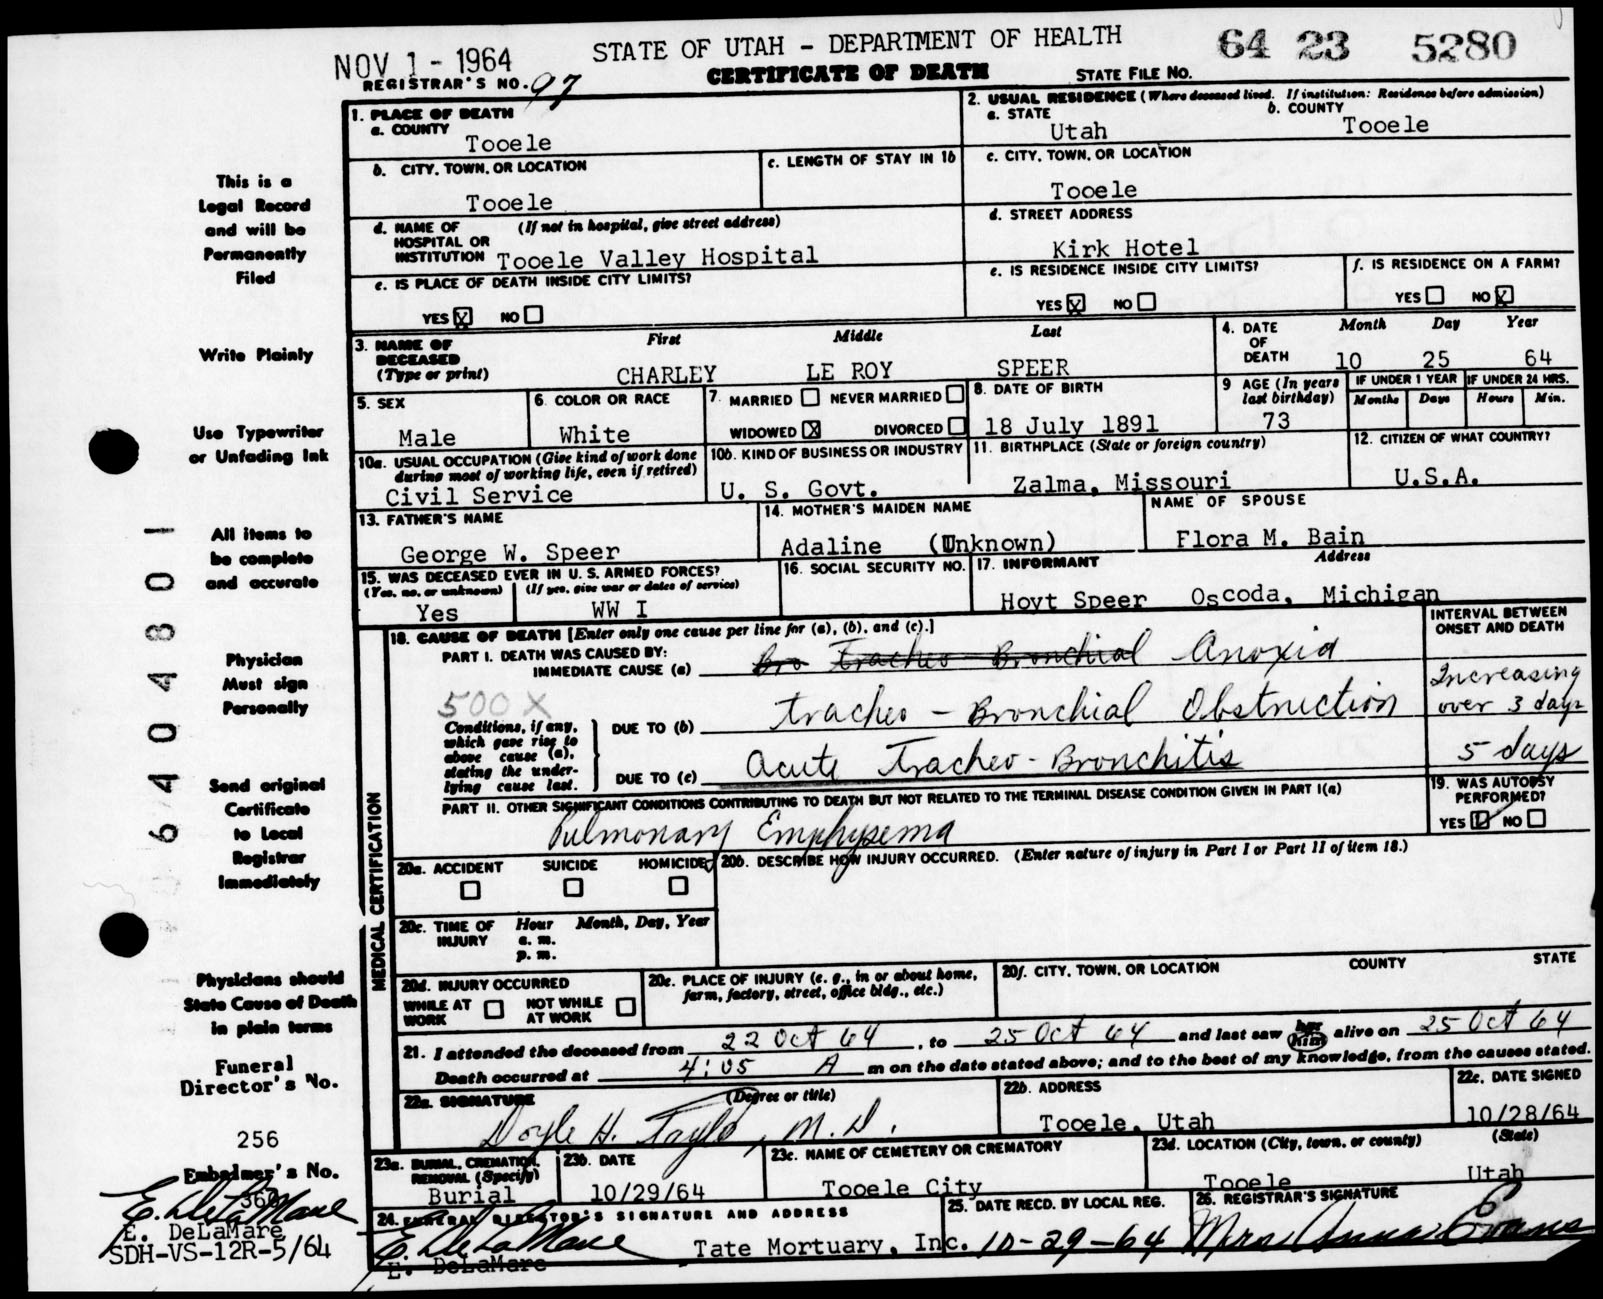 NOV 1 - 1964
STATE OF UTAH - DEPARTMENT OF HEALTH
64 23 5280
REGISTRAR'S NO. 97
CERTIFICATE OF DEATH
STATE FILE NO.
1. PLACE OF DEATH
a. COUNTY
Tooele
2. USUAL RESIDENCE (Where deceased lived. If institution: Residence before admission)
a. STATE
Utah
b. COUNTY
Tooele
b. CITY, TOWN, OR LOCATION
Tooele
c. LENGTH OF STAY IN 1b
c. CITY, TOWN, OR LOCATION
Tooele
d. NAME OF HOSPITAL OR INSTITUTION
(If not in hospital, give street address)
Tooele Valley Hospital
d. STREET ADDRESS
Kirk Hotel
e. IS PLACE OF DEATH INSIDE CITY LIMITS?
YES X NO
e. IS RESIDENCE INSIDE CITY LIMITS?
YES X NO
f. IS RESIDENCE ON A FARM?
YES NO X
3. NAME OF DECEASED
(Type or print)
First Middle Last
CHARLEY LE ROY SPEER
4. DATE OF DEATH
Month Day Year
10 25 64
5. SEX
Male
6. COLOR OR RACE
White
7. MARRIED NEVER MARRIED
WIDOWED X DIVORCED
8. DATE OF BIRTH
18 July 1891
9 AGE (In years last birthday)
73
IF UNDER 1 YEAR
Months Days
IF UNDER 24 HRS.
Hours Min.
10a. USUAL OCCUPATION (Give kind of work done during most of working life, even if retired)
Civil Service
10b. KIND OF BUSINESS OR INDUSTRY
U. S. Govt.
11. BIRTHPLACE (State or foreign country)
Zalma, Missouri
12. CITIZEN OF WHAT COUNTRY?
U.S.A.
13. FATHER'S NAME
George W. Speer
14. MOTHER'S MAIDEN NAME
Adaline (Unknown)
NAME OF SPOUSE
Flora M. Bain
15. WAS DECEASED EVER IN U. S. ARMED FORCES?
(Yes, no, or unknown) (If yes, give war or dates of service)
Yes WW I
16. SOCIAL SECURITY NO.
17. INFORMANT Address
Hoyt Speer Oscoda, Michigan
MEDICAL CERTIFICATION
18. CAUSE OF DEATH [Enter only one cause per line for (a), (b), and (c).]
INTERVAL BETWEEN ONSET AND DEATH
PART I. DEATH WAS CAUSED BY:
IMMEDIATE CAUSE (a) Bro Tracheo Bronchial Anoxia
500 X
Conditions, if any, which gave rise to above cause (a), stating the underlying cause last.
DUE TO (b) Tracheo - Bronchial Obstruction
Increasing over 3 days
DUE TO (c) Acute Tracheo-Bronchitis
5 days
PART II. OTHER SIGNIFICANT CONDITIONS CONTRIBUTING TO DEATH BUT NOT RELATED TO THE TERMINAL DISEASE CONDITION GIVEN IN PART I(a)
Pulmonary Emphysema
19. WAS AUTOPSY PERFORMED?
YES NO
20a. ACCIDENT SUICIDE HOMICIDE
20b. DESCRIBE HOW INJURY OCCURRED. (Enter nature of injury in Part I or Part II of item 18.)
20c. TIME OF INJURY
Hour Month, Day, Year
a. m.
p. m.
20d. INJURY OCCURRED
WHILE AT WORK NOT WHILE AT WORK
20e. PLACE OF INJURY (e. g., in or about home, farm, factory, street, office bldg., etc.)
20f. CITY, TOWN, OR LOCATION COUNTY STATE
21. I attended the deceased from 22 Oct 64, to 25 Oct 64 and last saw her him alive on 25 Oct 64
Death occurred at 4:05 A m on the date stated above; and to the best of my knowledge, from the causes stated.
22a. SIGNATURE (Degree or title)
Doyle H. Taylo, M.D.
22b. ADDRESS
Tooele, Utah
22c. DATE SIGNED
10/28/64
23a. BURIAL, CREMATION, REMOVAL (Specify)
Burial
23b. DATE
10/29/64
23c. NAME OF CEMETERY OR CREMATORY
Tooele City
23d. LOCATION (City, town, or county) (State)
Tooele Utah
24. FUNERAL DIRECTOR'S SIGNATURE AND ADDRESS
E. DeLaMare
E. DeLaMare
Tate Mortuary, Inc.
25. DATE RECD. BY LOCAL REG.
10-29-64
26. REGISTRAR'S SIGNATURE
Mrs Anna Evans
This is a
Legal Record
and will be
Permanently
Filed
Write Plainly
Use Typewriter
or Unfading Ink
All items to
be complete
and accurate
Physician
Must sign
Personally
Send original
Certificate
to Local
Registrar
Immediately
Physicians should
State Cause of Death
in plain terms
Funeral
Director's No.
256
Embalmer's No.
360
E. DeLaMare
E. DeLaMare
SDH-VS-12R-5/64
64 04801